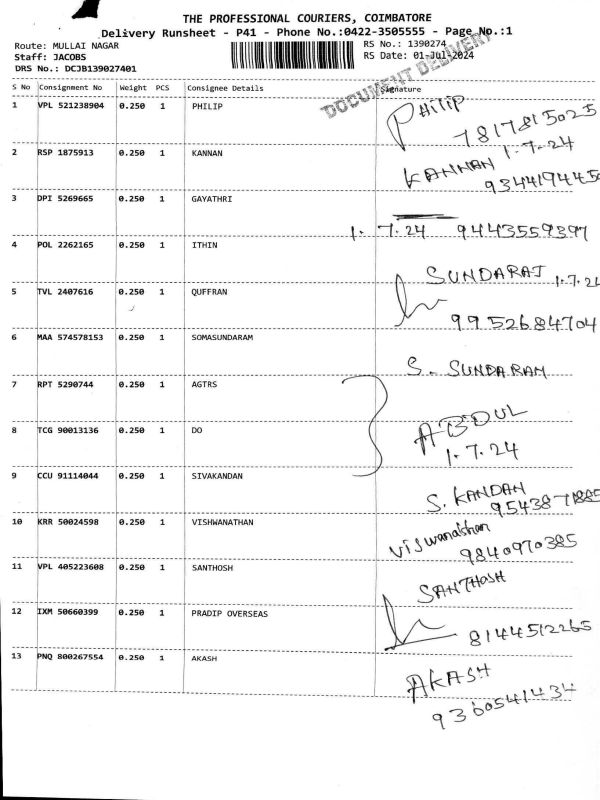 THE PROFESSIONAL COURIERS, COIMBATORE
Delivery Runsheet - P41 - Phone No.:0422-3505555 - Page No.:1
Route: MULLAI NAGAR
RS No.: 1390274
Staff: JACOBS
RS Date: 01-Jul-2024
DRS No.: DCJB139027401
DOCUMENT DELIVERY
S No Consignment No Weight PCS Consignee Details Signature
1 VPL 521238904 0.250 1 PHILIP PHILIP
7817815025
2 RSP 1875913 0.250 1 KANNAN 1.7.24
KANNAN
9344194450
3 DPI 5269665 0.250 1 GAYATHRI
1.7.24 9443559397
4 POL 2262165 0.250 1 ITHIN
SUNDARAJ 1.7.24
5 TVL 2407616 0.250 1 QUFFRAN
9952684704
6 MAA 574578153 0.250 1 SOMASUNDARAM
S. SUNDARAM
7 RPT 5290744 0.250 1 AGTRS
ABDUL
8 TCG 90013136 0.250 1 DO
1.7.24
9 CCU 91114044 0.250 1 SIVAKANDAN
S. KANDAN
9543871885
10 KRR 50024598 0.250 1 VISHWANATHAN
Viswanathan
9840970385
11 VPL 405223608 0.250 1 SANTHOSH
SANTHOSH
12 IXM 50660399 0.250 1 PRADIP OVERSEAS
8144512265
13 PNQ 800267554 0.250 1 AKASH
AKASH
9360541434